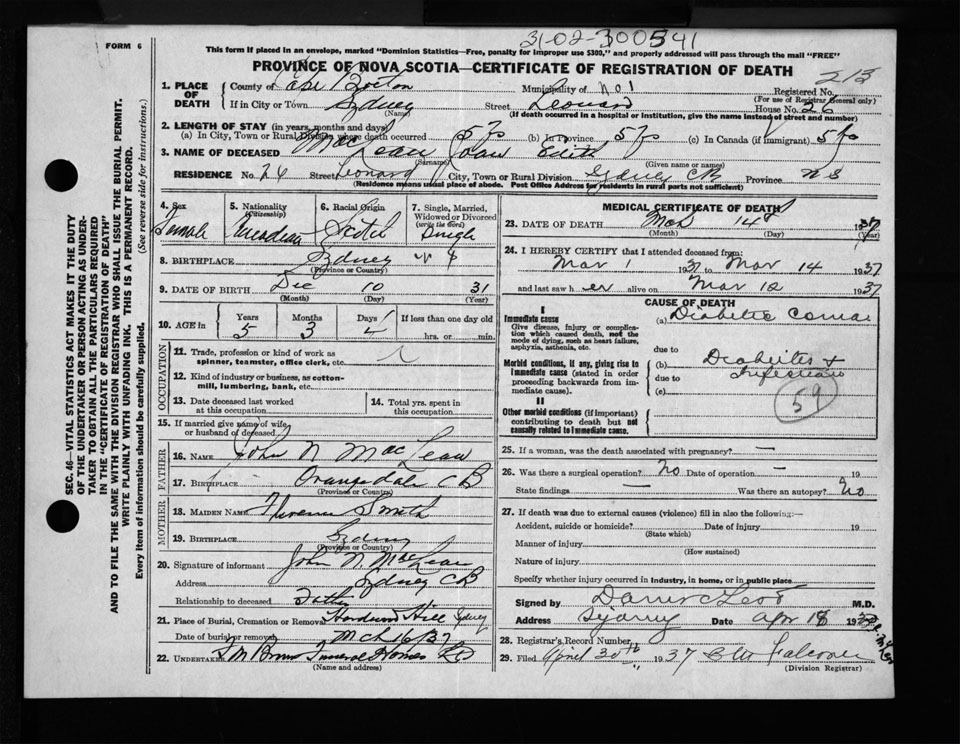 31-02-300541
FORM 6
This form if placed in an envelope, marked "Dominion Statistics—Free, penalty for improper use $300," and properly addressed will pass through the mail "FREE"
PROVINCE OF NOVA SCOTIA—CERTIFICATE OF REGISTRATION OF DEATH
213
1. PLACE OF DEATH
County of Cape Breton Municipality of No 1 Registered No.
(For use of Registrar General only)
If in City or Town Sydney Street Leonard House No. 26
(Name) (If death occurred in a hospital or institution, give the name instead of street and number)
2. LENGTH OF STAY (in years, months and days)
(a) In City, Town or Rural Division where death occurred 5 (b) In Province 5 (c) In Canada (if immigrant) 5
3. NAME OF DECEASED MacLean Joan Edith
(Surname) (Given name or names)
RESIDENCE No. 26 Street Leonard City, Town or Rural Division Sydney CB Province N S
(Residence means usual place of abode. Post Office Address for residents in rural parts not sufficient)
4. Sex Female
5. Nationality (Citizenship) Canadian
6. Racial Origin Scotch
7. Single, Married, Widowed or Divorced (write the word) Single
8. BIRTHPLACE Sydney N S
(Province or Country)
9. DATE OF BIRTH Dec 10 31
(Month) (Day) (Year)
10. AGE in Years Months Days If less than one day old
5 3 4 hrs. or min.
OCCUPATION
11. Trade, profession or kind of work as spinner, teamster, office clerk, etc.
12. Kind of industry or business, as cotton-mill, lumbering, bank, etc.
13. Date deceased last worked at this occupation
14. Total yrs. spent in this occupation
15. If married give name of wife or husband of deceased
FATHER
16. NAME John N MacLean
17. BIRTHPLACE Orangedale CB
(Province or Country)
MOTHER
18. MAIDEN NAME Florence Smith
19. BIRTHPLACE Sydney
(Province or Country)
20. Signature of informant John N. MacLean
Address Sydney CB
Relationship to deceased Father
21. Place of Burial, Cremation or Removal Hardwood Hill Sydney
Date of burial or removal Mch 16/37
22. UNDERTAKER Funeral Homes
(Name and address)
MEDICAL CERTIFICATE OF DEATH
23. DATE OF DEATH Mar 14 1937
(Month) (Day) (Year)
24. I HEREBY CERTIFY that I attended deceased from:
Mar 1 1937 to Mar 14 1937
and last saw her alive on Mar 12 1937
CAUSE OF DEATH
I
Immediate cause
Give disease, injury or complication which caused death, not the mode of dying, such as heart failure, asphyxia, asthenia, etc.
(a) Diabetic Coma
due to
Morbid conditions, if any, giving rise to immediate cause (stated in order proceeding backwards from immediate cause).
(b) Diabetes +
due to
(c)
59
II
Other morbid conditions (if important) contributing to death but not causally related to immediate cause.
25. If a woman, was the death associated with pregnancy? —
26. Was there a surgical operation? No Date of operation — 19
State findings — Was there an autopsy? No
27. If death was due to external causes (violence) fill in also the following:—
Accident, suicide or homicide? Date of injury 19
(State which)
Manner of injury
(How sustained)
Nature of injury
Specify whether injury occurred in industry, in home, or in public place
Signed by M.D.
Address Sydney Date Apr 18
28. Registrar's Record Number
29. Filed April 30th 1937 Falconer
(Division Registrar)
SEC. 46—VITAL STATISTICS ACT MAKES IT THE DUTY
OF THE UNDERTAKER OR PERSON ACTING AS UNDER-
TAKER TO OBTAIN ALL THE PARTICULARS REQUIRED
IN THE "CERTIFICATE OF REGISTRATION OF DEATH"
AND TO FILE THE SAME WITH THE DIVISION REGISTRAR WHO SHALL ISSUE THE BURIAL PERMIT.
WRITE PLAINLY WITH UNFADING INK. THIS IS A PERMANENT RECORD.
Every item of information should be carefully supplied. (See reverse side for instructions.)